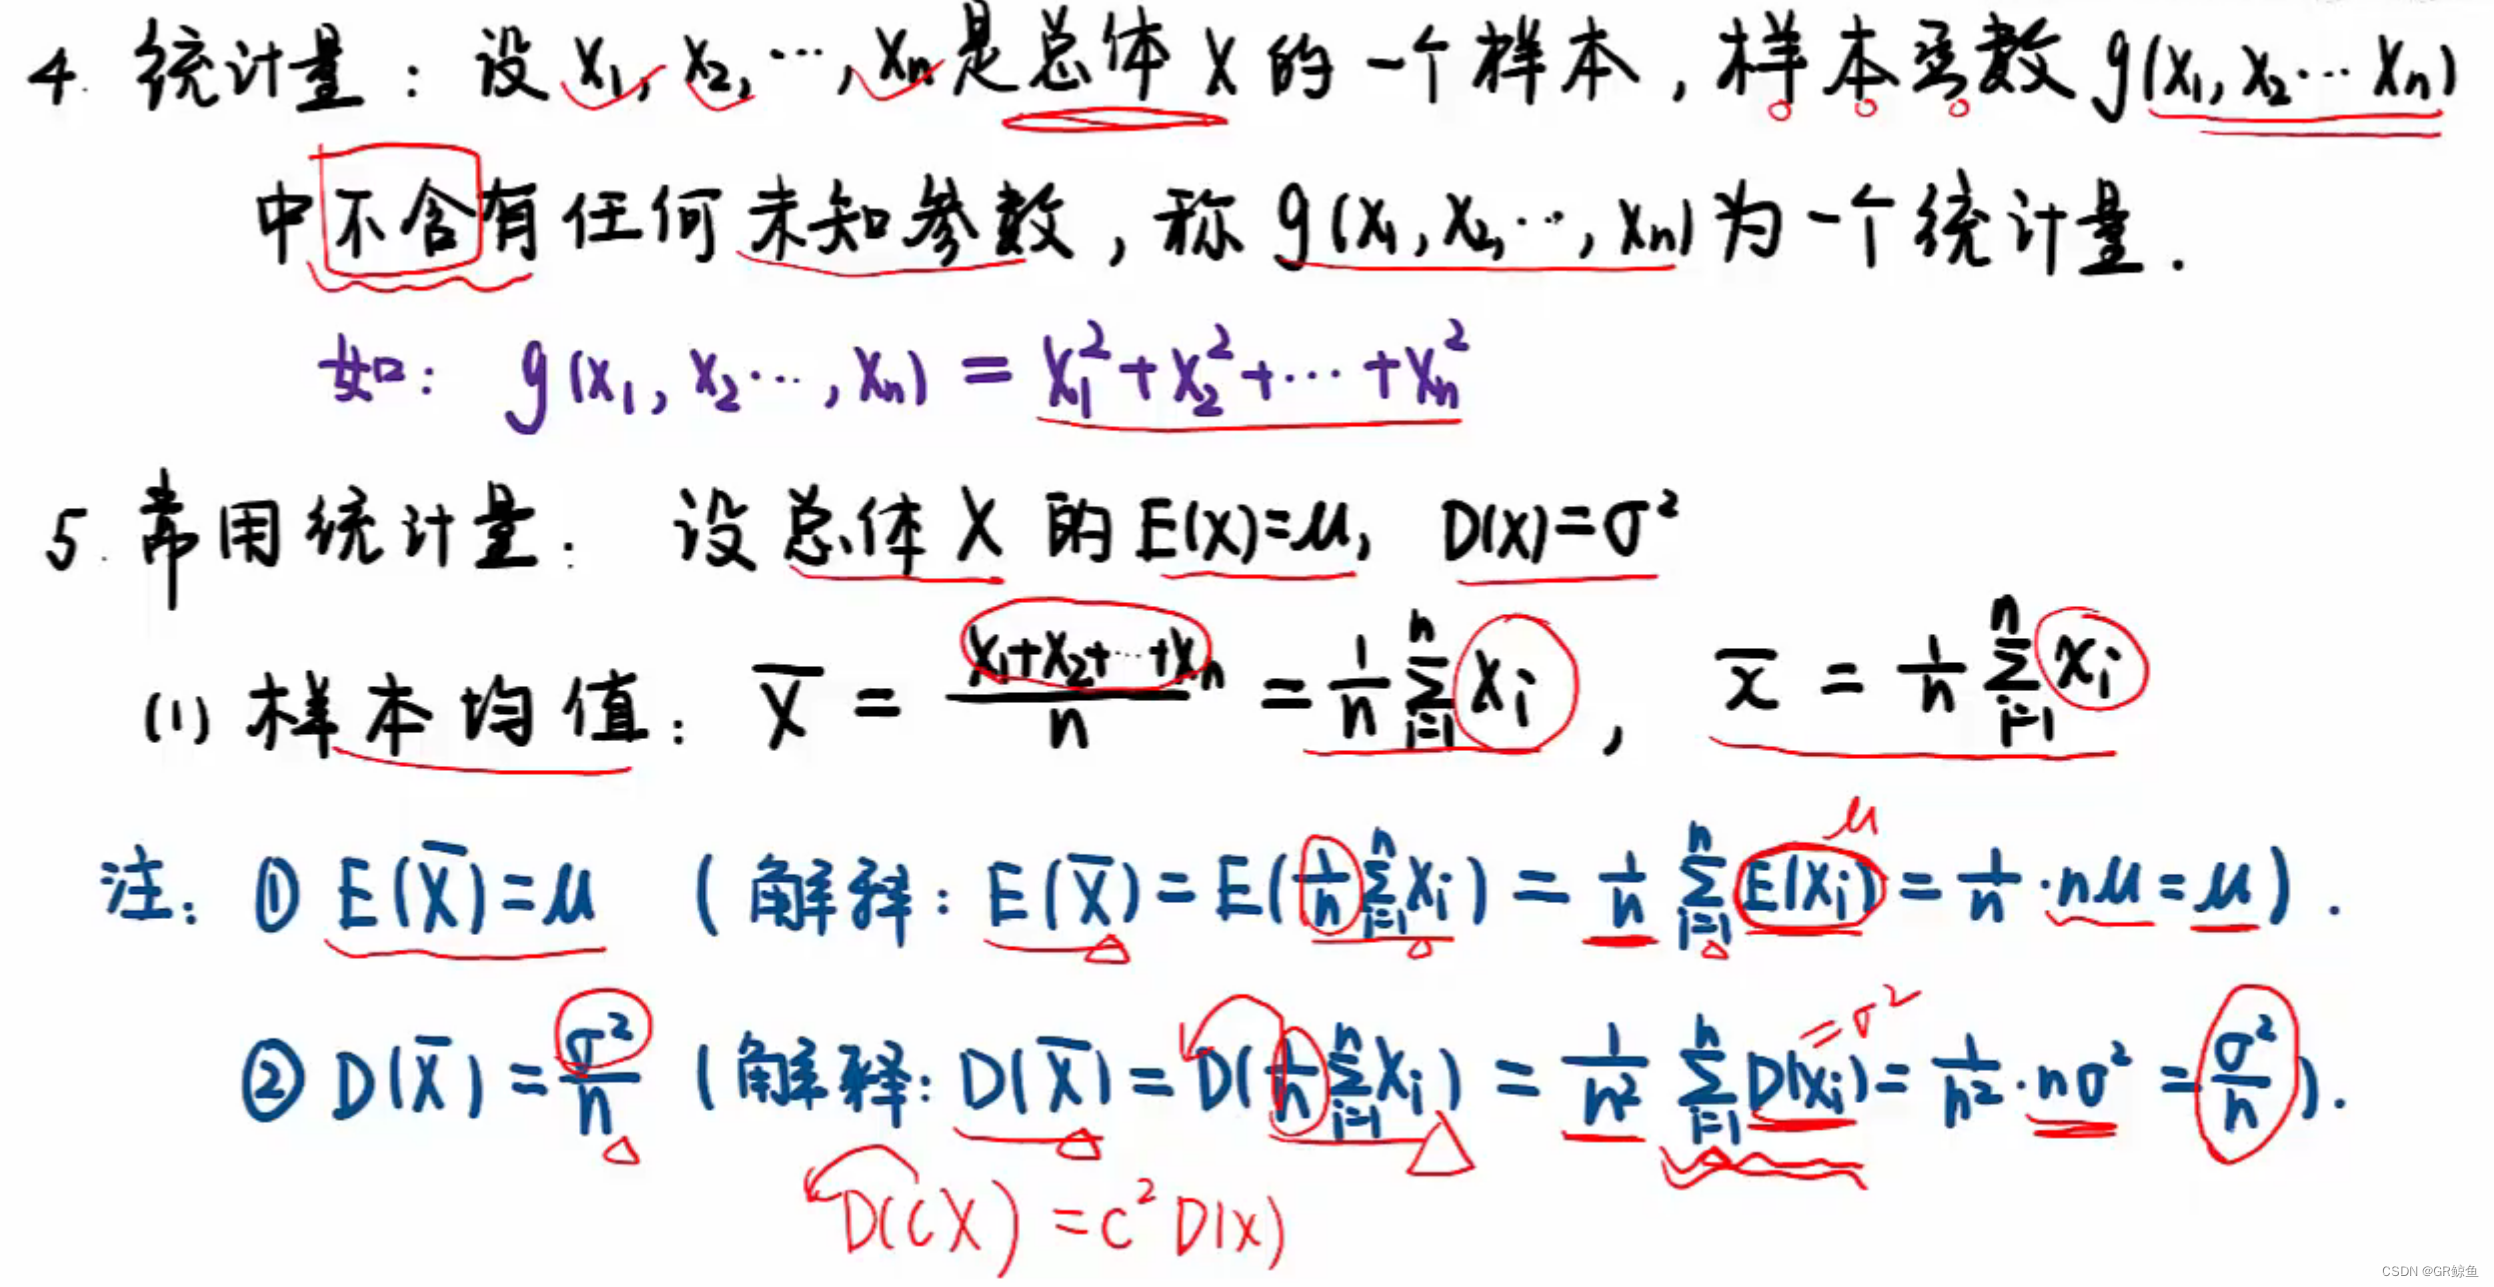 4. 统计量：设 X₁, X₂, ⋯, Xₙ是总体 X 的一个样本，样本函数 g(X₁, X₂⋯Xₙ)
中不含有任何未知参数，称 g(X₁, X₂, ⋯, Xₙ) 为一个统计量.
如： g(X₁, X₂⋯, Xₙ) = X₁²+X₂²+⋯+Xₙ²
5. 常用统计量： 设总体 X 的 E(X)=μ, D(X)=σ²
(1) 样本均值： X̄ = (X₁+X₂+⋯+Xₙ)/n = 1/n ∑ᵢ₌₁ⁿ Xᵢ , x̄ = 1/n ∑ᵢ₌₁ⁿ xᵢ
μ
注：① E(X̄)=μ (解释：E(X̄) = E(1/n ∑ᵢ₌₁ⁿ Xᵢ) = 1/n ∑ᵢ₌₁ⁿ E(Xᵢ) = 1/n · nμ = μ).
=σ²
② D(X̄) = σ²/n (解释：D(X̄) = D(1/n ∑ᵢ₌₁ⁿ Xᵢ) = 1/n² ∑ᵢ₌₁ⁿ D(Xᵢ) = 1/n² · nσ² = σ²/n).
D(CX) = C² D(X)
CSDN @GR鲸鱼